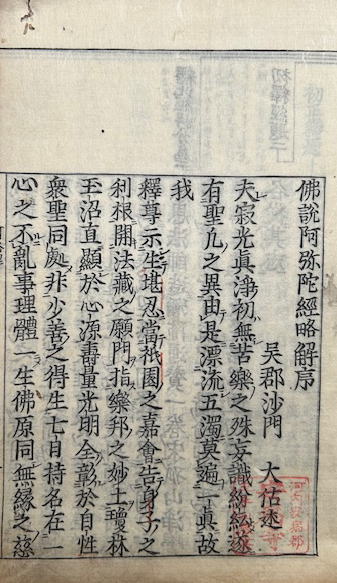 佛說阿弥陀經略觧序
吳郡沙門　大佑　述
夫寂光眞淨初無苦樂之殊妄識紛紜遂
有聖凢之異由是漂流五濁莫遍一眞故
我
釋尊示生堪忍當祇園之嘉會告身子之
利根開法藏之願門指樂邦之妙土瓊林
玉沼直顯於心源壽量光明全彰於自性
衆聖同處非少善之得生七日持名在一
心之不亂事理體一生佛原同無縁之慈